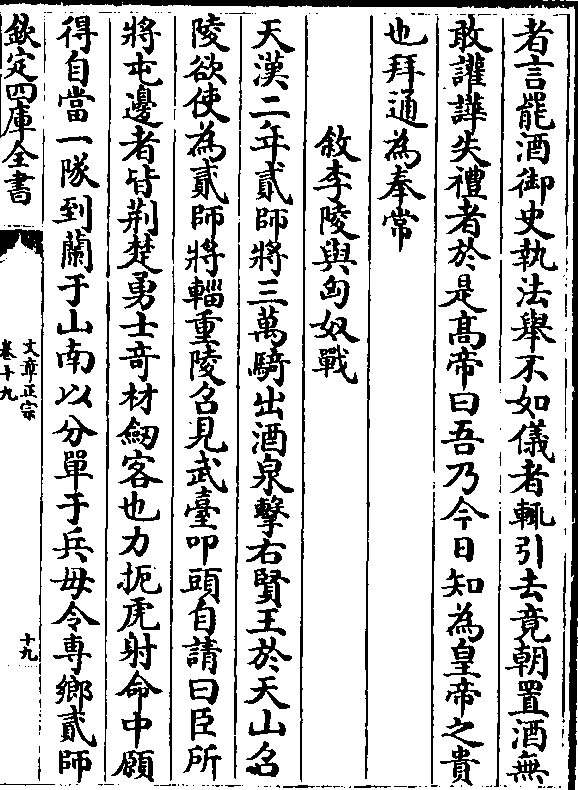 者言罷酒御史執法舉不如儀者輒引去竟朝置酒無
敢讙譁失禮者於是髙帝曰吾乃今日知為皇帝之貴
也拜通為奉常
敘李陵與匈奴戰
天漢二年貳師將三萬騎出酒泉擊右賢王於天山名
陵欲使為貳師將輜重陵召見武臺叩頭自請曰臣所
將屯邊者皆荆楚勇士竒材劒客也力扼虎射命中願
得自當一隊到蘭于山南以分單于兵毋令専鄉貳師
欽定四庫全書
文章正宗
卷十九
十九